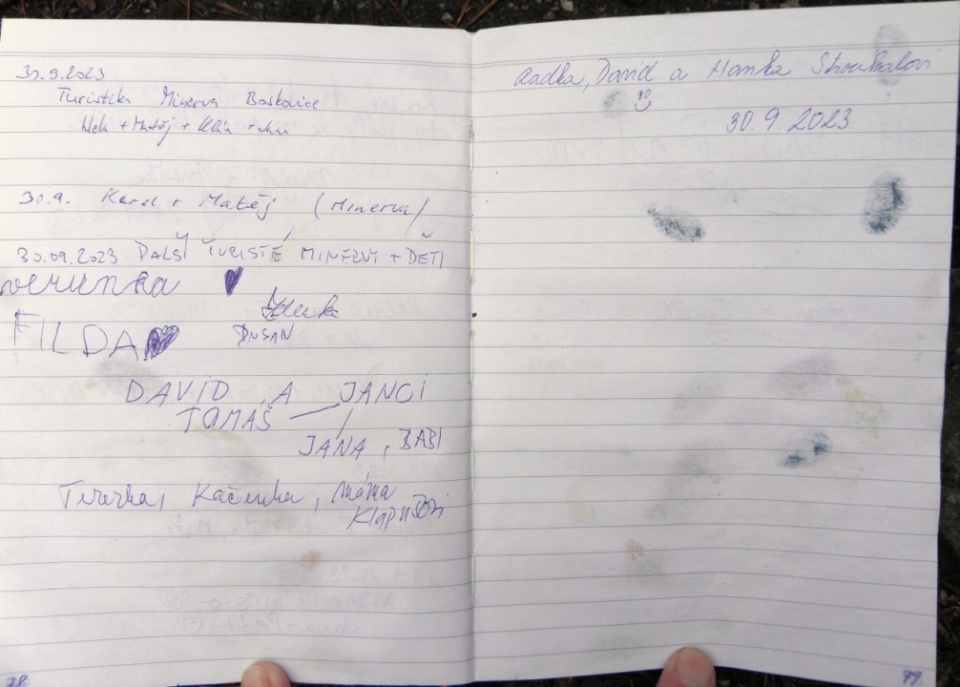 30.9.2023
Turistika Minerva Boskovice
+ Matěj +
30.9. Karel + Matěj (Minerva)
30.09.2023 DALŠÍ TURISTÉ MINERVY + DĚTI
verunka
Zdenka
FILDA
DUSAN
DAVID A JANČI
TOMÁŠ
JANA, BABI
Terezka, Kačenka, máma
78
Radka, David a Hanka Stroukalovi
30.9.2023
79